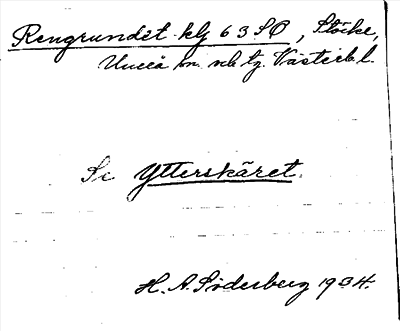 Rengrundet klj 63 SO, Stöcke,
Umeå sn. nb tg. Västerb. l.
Se Ytterskäret.
H. A. Söderberg 1934.